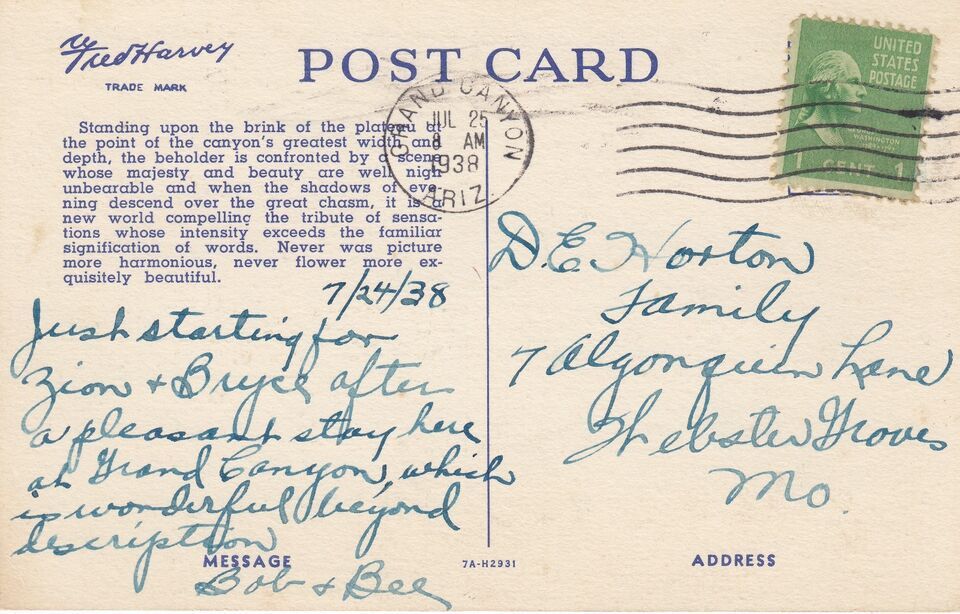 Fred Harvey
TRADE MARK
POST CARD
GRAND CANYON
JUL 25
8 AM
1938
ARIZ.
UNITED
STATES
POSTAGE
1 CENT 1
Standing upon the brink of the plateau at
the point of the canyon's greatest width and
depth, the beholder is confronted by a scene
whose majesty and beauty are well nigh
unbearable and when the shadows of eve-
ning descend over the great chasm, it is a
new world compelling the tribute of sensa-
tions whose intensity exceeds the familiar
signification of words. Never was picture
more harmonious, never flower more ex-
quisitely beautiful.
7/24/38
Just starting for
Zion + Bryce after
a pleasant stay here
at Grand Canyon, which
is wonderful beyond
description
Bob + Bee
D. E. Horton
Family
7 Algonquin Lane
Webster Groves
Mo.
MESSAGE
7A-H2931
ADDRESS